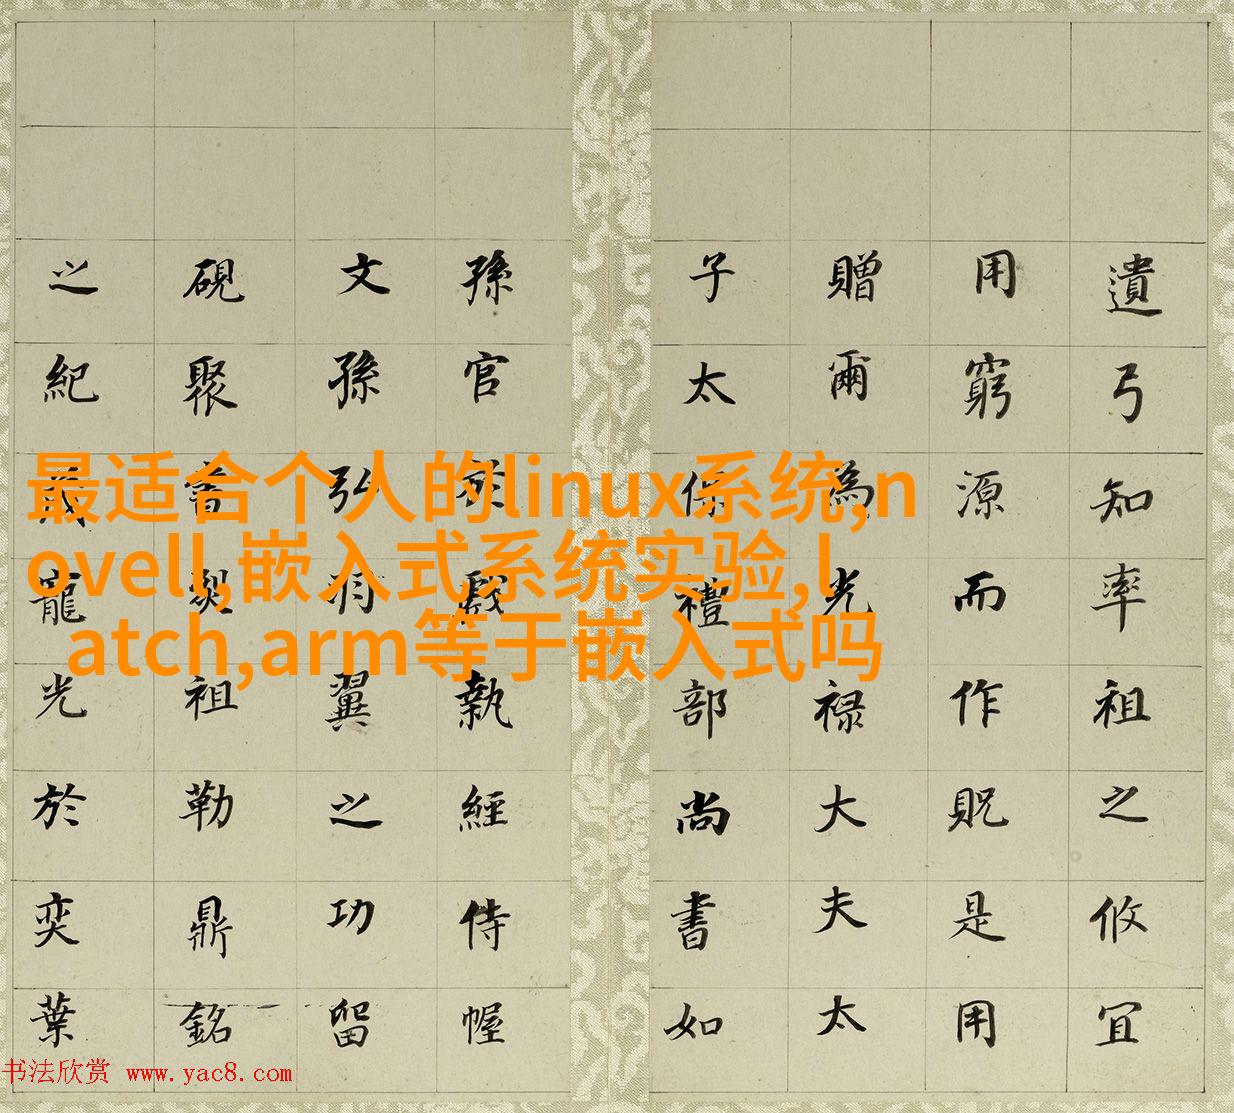 遺弓知率祖之攸宜
用窮源而作貺是用
贈爾為光禄大夫太
子太保禮部尚書如
孫官於戲執經侍幄
文孫弘羽翼之功留
硯聚祖勒鼎銘
之紀寵光於奕葉
最适合个人的linux系统,n
ovell,嵌入式系统实验,l
atch,arm等于嵌入式吗
书法欣赏 www.yac8.com